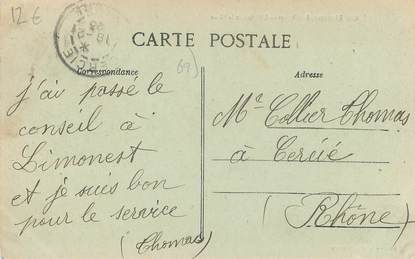 12 €
CARTE POSTALE
Correspondance
69
Adresse
j'ai passé le
conseil à
Limonest
et je suis bon
pour le service
(Thomas)
Mr Collier Thomas
à Cercié
(Rhône)